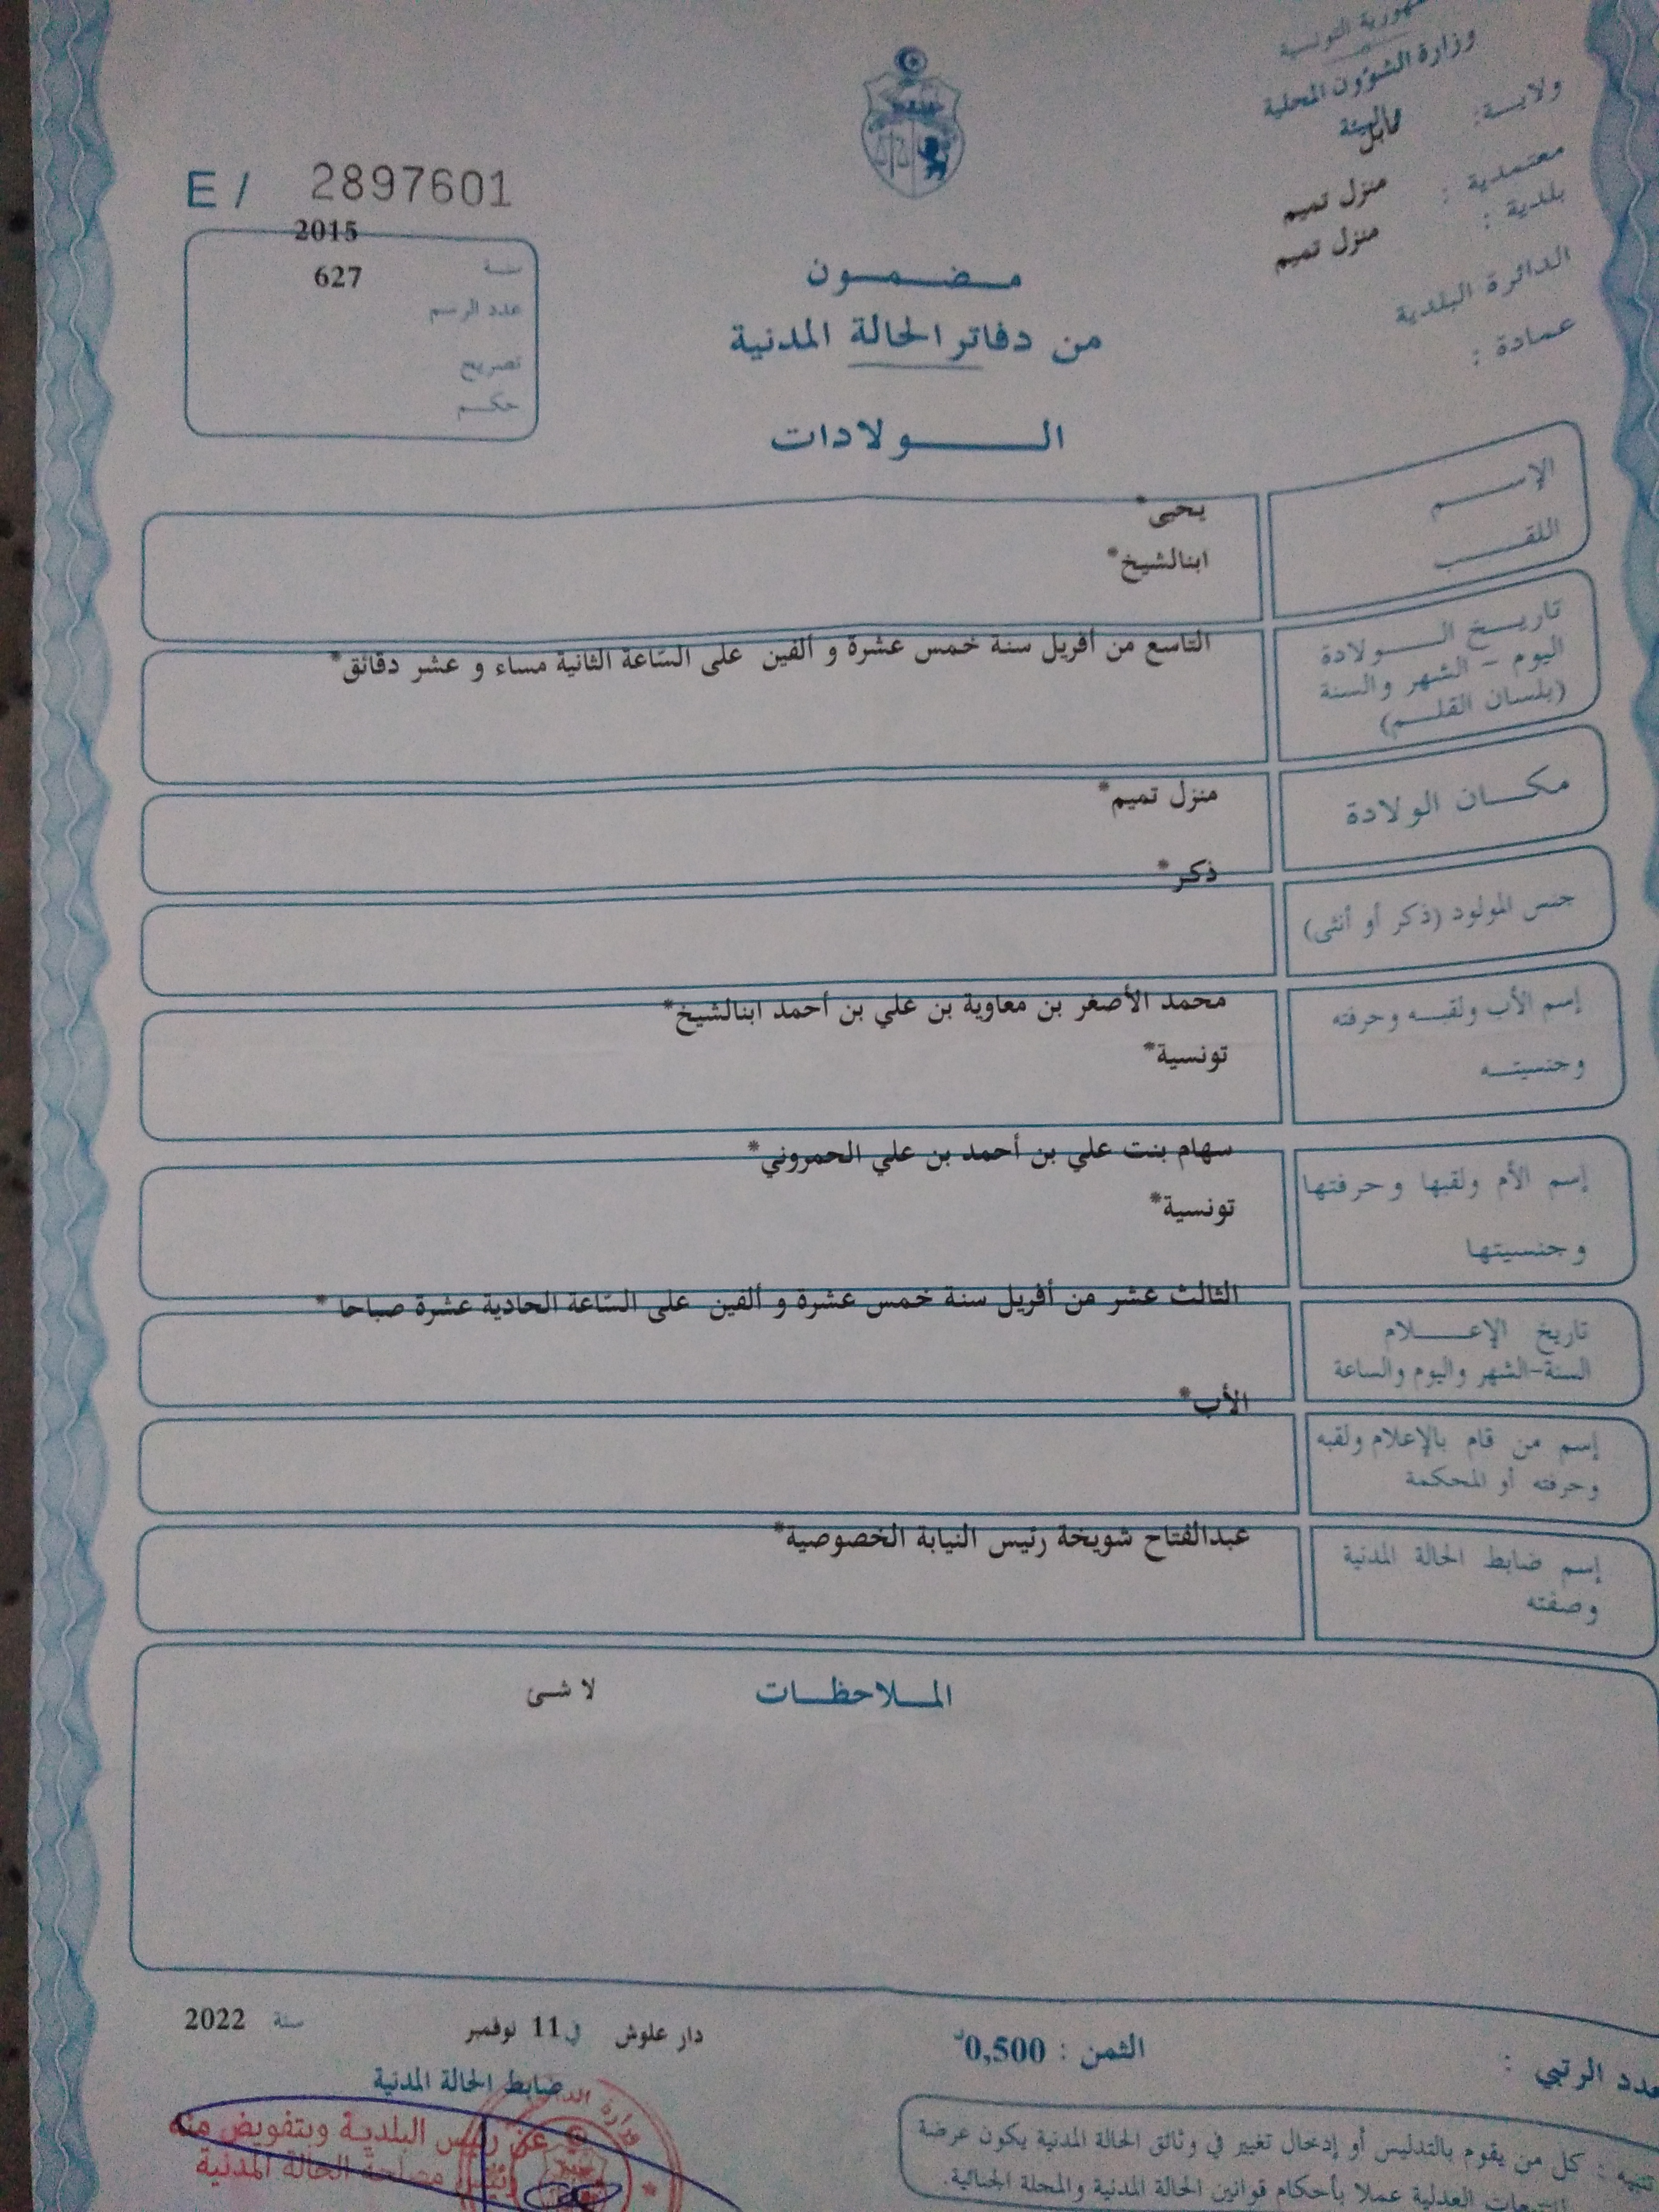 الجمهورية التونسية
وزارة الشؤون المحلية
والبيئة
ولايـــة: نابل
معتمدية : منزل تميم
بلدية : منزل تميم
الدائرة البلدية
عمادة :
E / 2897601
2015
سنة
عدد الرسم 627
تصريح
حكـــم
مـــضـــمـــون
من دفاتر الحالة المدنية
الـــــولادات
الإســـــم يحيى*
اللقـــــب ابنالشيخ*
تاريـــخ الـــــولادة
اليوم – الشهر والسنة
(بلسان القلـــم)
التاسع من أفريل سنة خمس عشرة و ألفين على السّاعة الثانية مساء و عشر دقائق*
مكـــان الولادة
منزل تميم*
جنس المولود (ذكر أو أنثى)
ذكر*
إسم الأب ولقبـــه وحرفته
محمد الأصغر بن معاوية بن علي بن أحمد ابنالشيخ*
وجنسيتـــه
تونسية*
إسم الأم ولقبها وحرفتها
سهام بنت علي بن أحمد بن علي الحمروني*
وجنسيتها
تونسية*
تاريخ الإعـــــلام
السنة-الشهر واليوم والساعة
الثالث عشر من أفريل سنة خمس عشرة و ألفين على السّاعة الحادية عشرة صباحا *
إسم من قام بالإعلام ولقبه
وحرفته أو المحكمة
الأب*
إسم ضابط الحالة المدنية
وصفته
عبدالفتاح شويخة رئيس النيابة الخصوصية*
المـــلاحظـــات لا شئ
دار علوش في 11 نوفمبر سنة 2022
ضابط الحالة المدنية
عن رئيس البلدية وبتفويض منه
رئيس مصلحة الحالة المدنية
وزارة الداخلية
الثمن : 0,500د
عدد الرتبي :
تنبيه : كل من يقوم بالتدليس أو إدخال تغيير في وثائق الحالة المدنية يكون عرضة
للتتبعات العدلية عملا بأحكام قوانين الحالة المدنية والمجلة الجنائية.